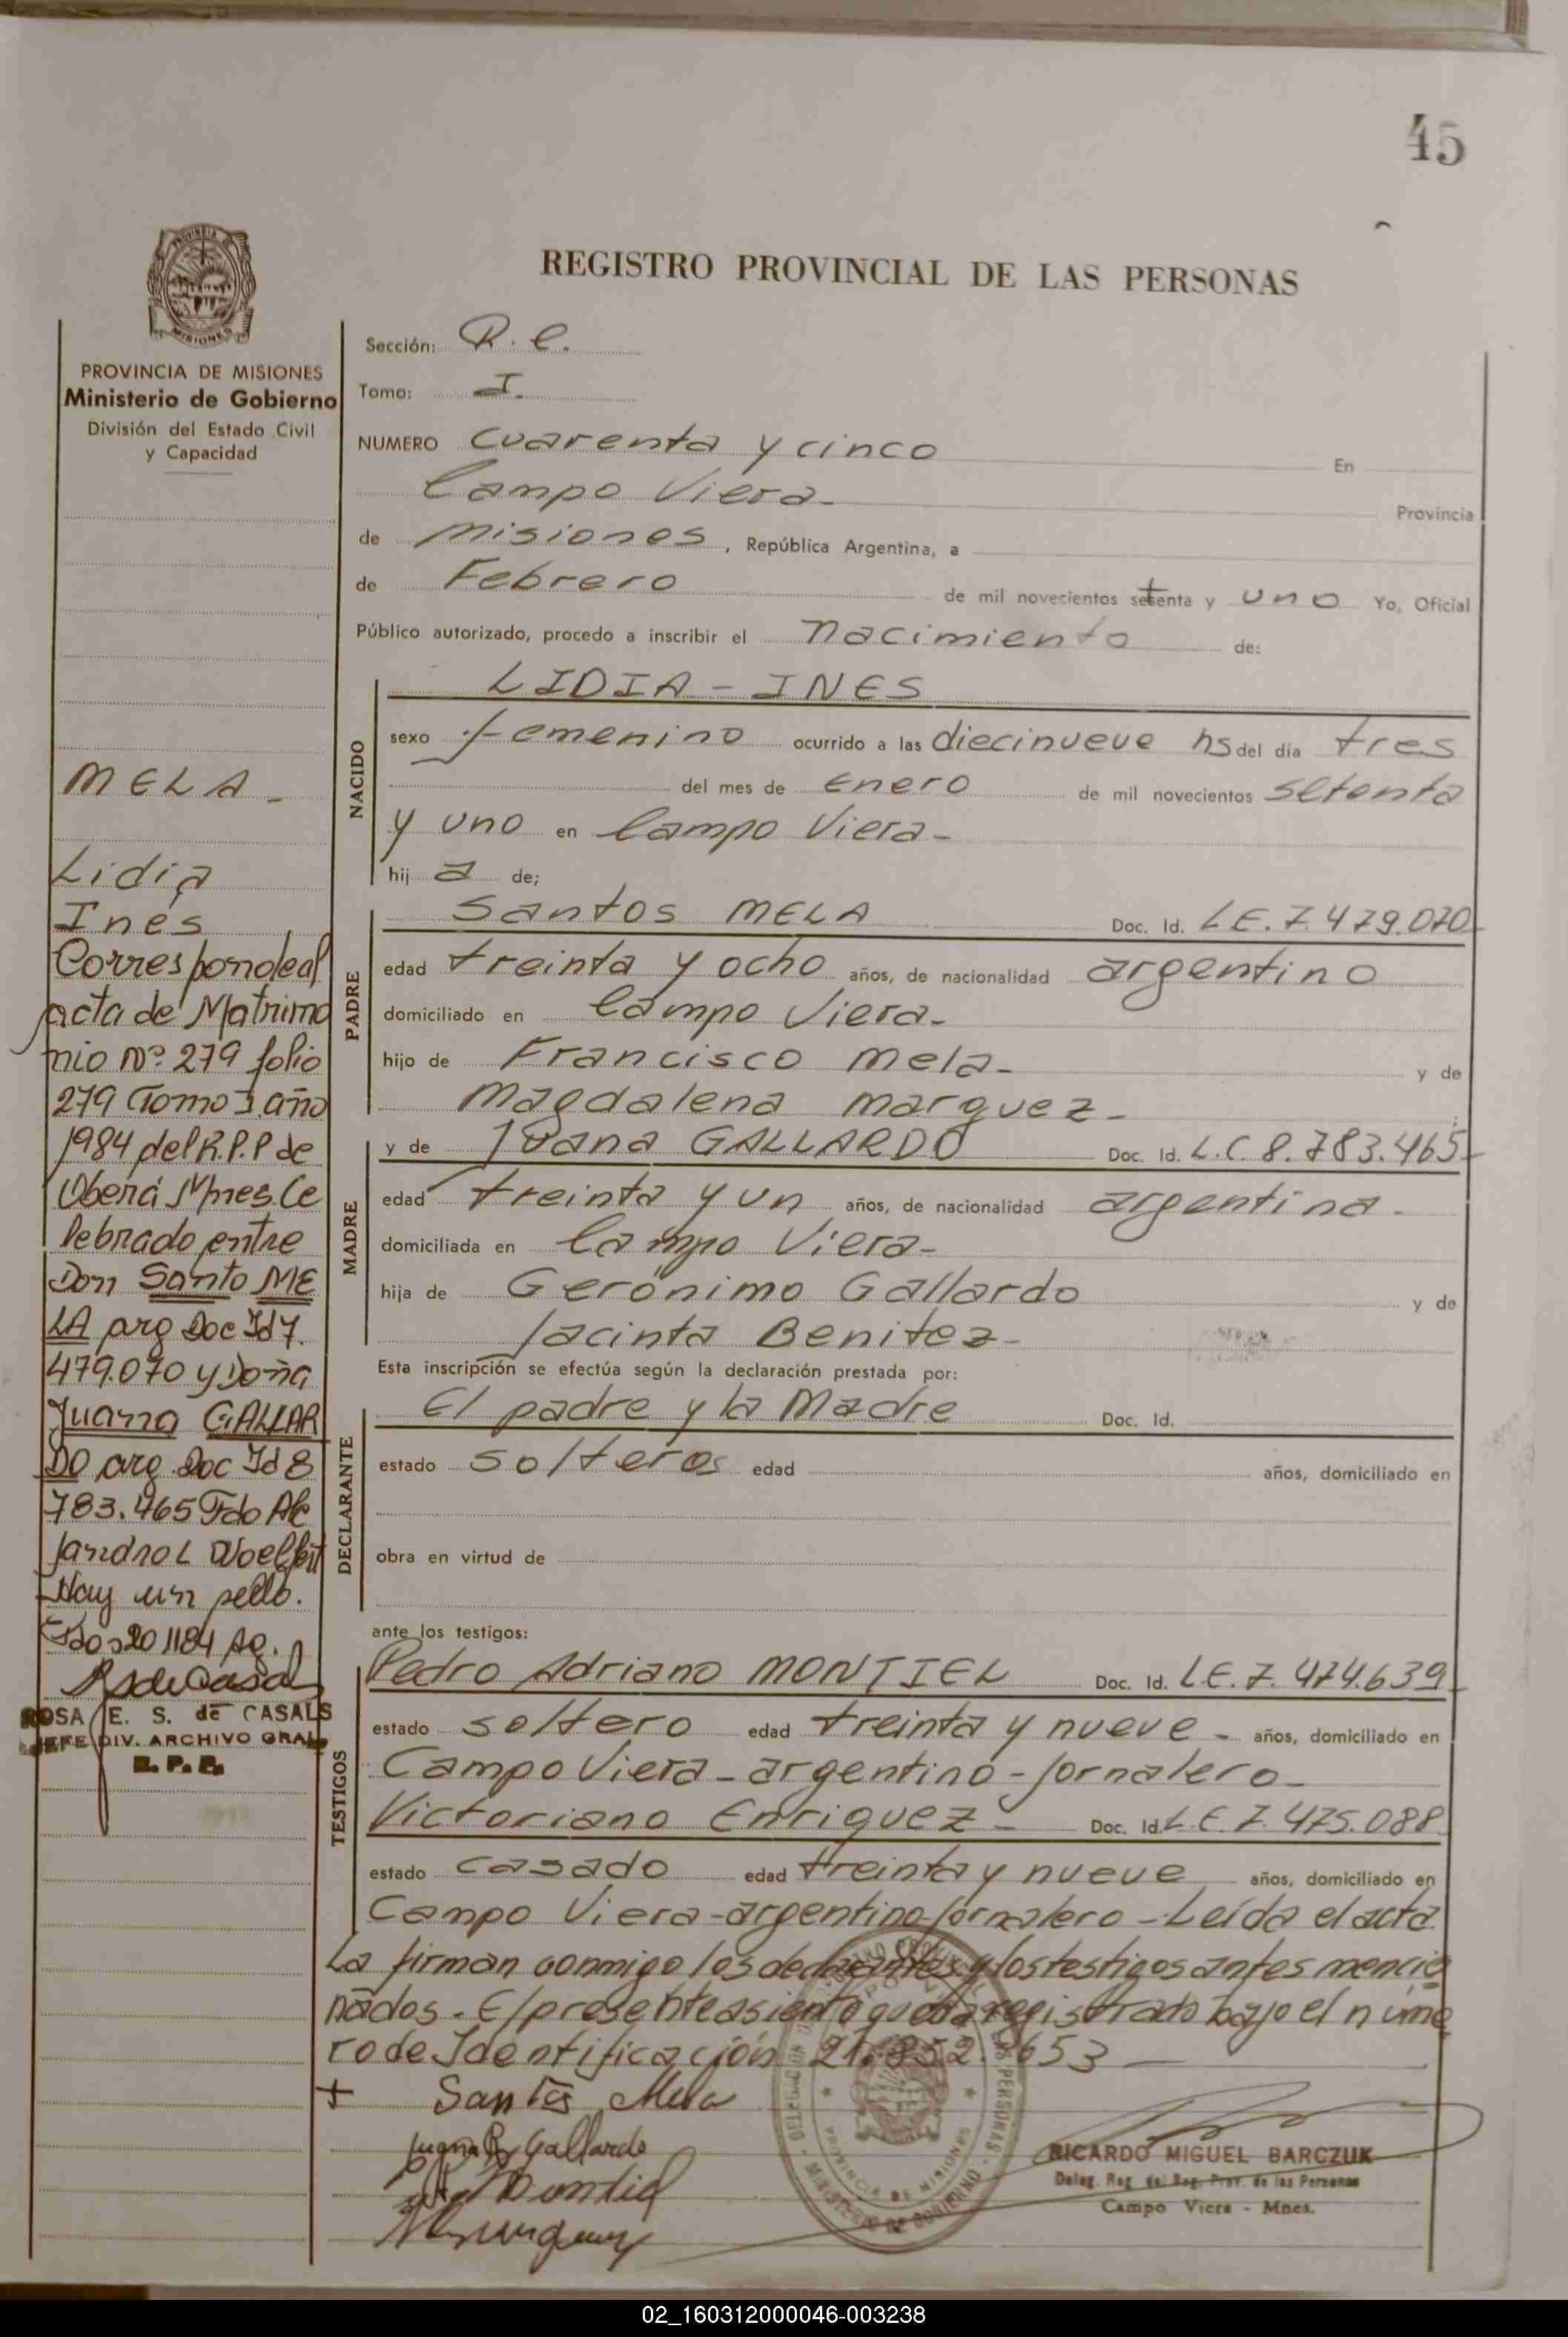 45
REGISTRO PROVINCIAL DE LAS PERSONAS
PROVINCIA DE MISIONES
Ministerio de Gobierno
División del Estado Civil
y Capacidad
MELA -
Lidia
Inés
Corresponde al
acta de Matrimo
nio Nº 279 folio
279 Tomo I año
1984 del R.P.P de
Oberá Mnes. Ce
lebrado entre
Don Santo ME
LA arg Doc Id 7.
479.070 y Doña
Juana GALLAR
DO arg. Doc Id 8
783.465 Fdo Ale
jandro L
Hay un sello.
201184
ROSA E. S. de CASALS
JEFE DIV. ARCHIVO GRAL
R. P. P.
Sección: R. C.
Tomo: I.
NUMERO Cuarenta y cinco En
Campo Viera - Provincia
de Misiones, República Argentina, a
de Febrero de mil novecientos setenta y uno Yo, Oficial
Público autorizado, procedo a inscribir el nacimiento de:
NACIDO
LIDIA - INES
sexo femenino ocurrido a las diecinueve hs del día tres
del mes de Enero de mil novecientos setenta
y uno en Campo Viera -
hij a de;
PADRE
Santos MELA Doc. Id. L.E. 7.479.070
edad treinta y ocho años, de nacionalidad argentino
domiciliado en Campo Viera -
hijo de Francisco Mela - y de
Magdalena Marquez -
MADRE
y de Juana GALLARDO Doc. Id. L.C. 8.783.465
edad treinta y un años, de nacionalidad argentina -
domiciliada en Campo Viera -
hija de Gerónimo Gallardo y de
Jacinta Benitez -
Esta inscripción se efectúa según la declaración prestada por:
DECLARANTE
El padre y la Madre Doc. Id.
estado solteros edad años, domiciliado en
obra en virtud de
ante los testigos:
TESTIGOS
Pedro Adriano MONTIEL Doc. Id. L.E. 7.474.639
estado soltero edad treinta y nueve - años, domiciliado en
Campo Viera - argentino - jornalero -
Victoriano Enriquez - Doc. Id. L.E. 7.475.088
estado casado edad treinta y nueve años, domiciliado en
Campo Viera - argentino - jornalero - Leída el acta
La firman conmigo los declarantes y los testigos antes mencio
nados. El presente asiento queda registrado bajo el núme
ro de Identificación 21.852.653 —
+ Santos Mela
Juana R Gallardo
RICARDO MIGUEL BARCZUK
Deleg. Reg. del Reg. Prov. de las Personas
Campo Viera - Mnes.
02_160312000046-003238